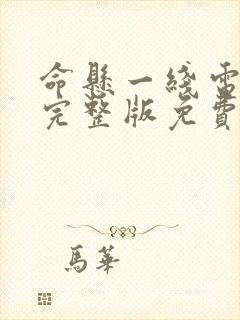 命懸一綫電
完整版免費
馬華